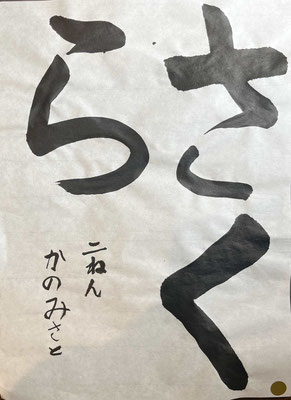 さく
ら
二ねん
かのみさと